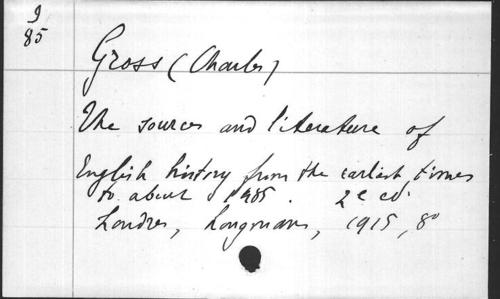 9
85
Gross (Charles)
The sources and literature of
English history from the earliest times
to about 1485. 2e ed.
Londres, Longmans, 1915, 8°